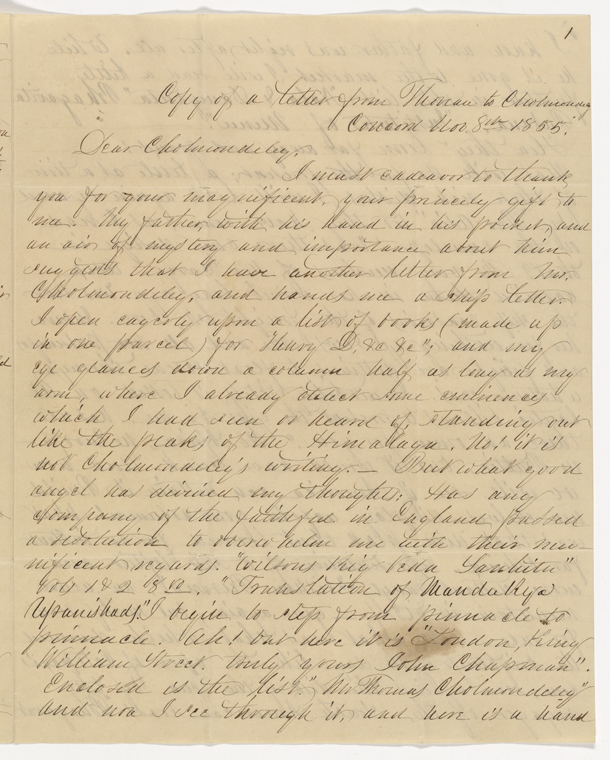 1
Copy of a letter from Thoreau to Cholmondeley
Concord Nov. 8th 1855.
Dear Cholmondeley.
I must endeavor to thank
you for your magnificent, your princely gift to
me. My father, with his hand in his pocket, and
an air of mystery and importance about him
suggests that I have another letter from Mr.
Cholmondeley, and hands me a ship letter
I open eagerly upon a list of books (made up
in one parcel) for Henry D. &c &c"; and my
eye glances down a column half as long as my
arm, where I already detect some eminences
which I had seen or heard of, standing out
like the peaks of the Himalaya. No! it is
not Cholmondeley's writing. — But what good
angel has divined my thoughts: Has any
company of the faithful in England passed
a resolution to overwhelm me with their mu-
nificent regards. "Wilsons Rig Veda Sanhita"
Vols 1 & 2 8vo. "Translation of Mandukya
Upanishads". I begin to step from pinnacle to
pinnacle. Ah! but here it is "London, King
William Street. truly yours John Chapman".
Enclosed is the list." Mr Thomas Cholmondeley"
and now I see through it, and here is a hand